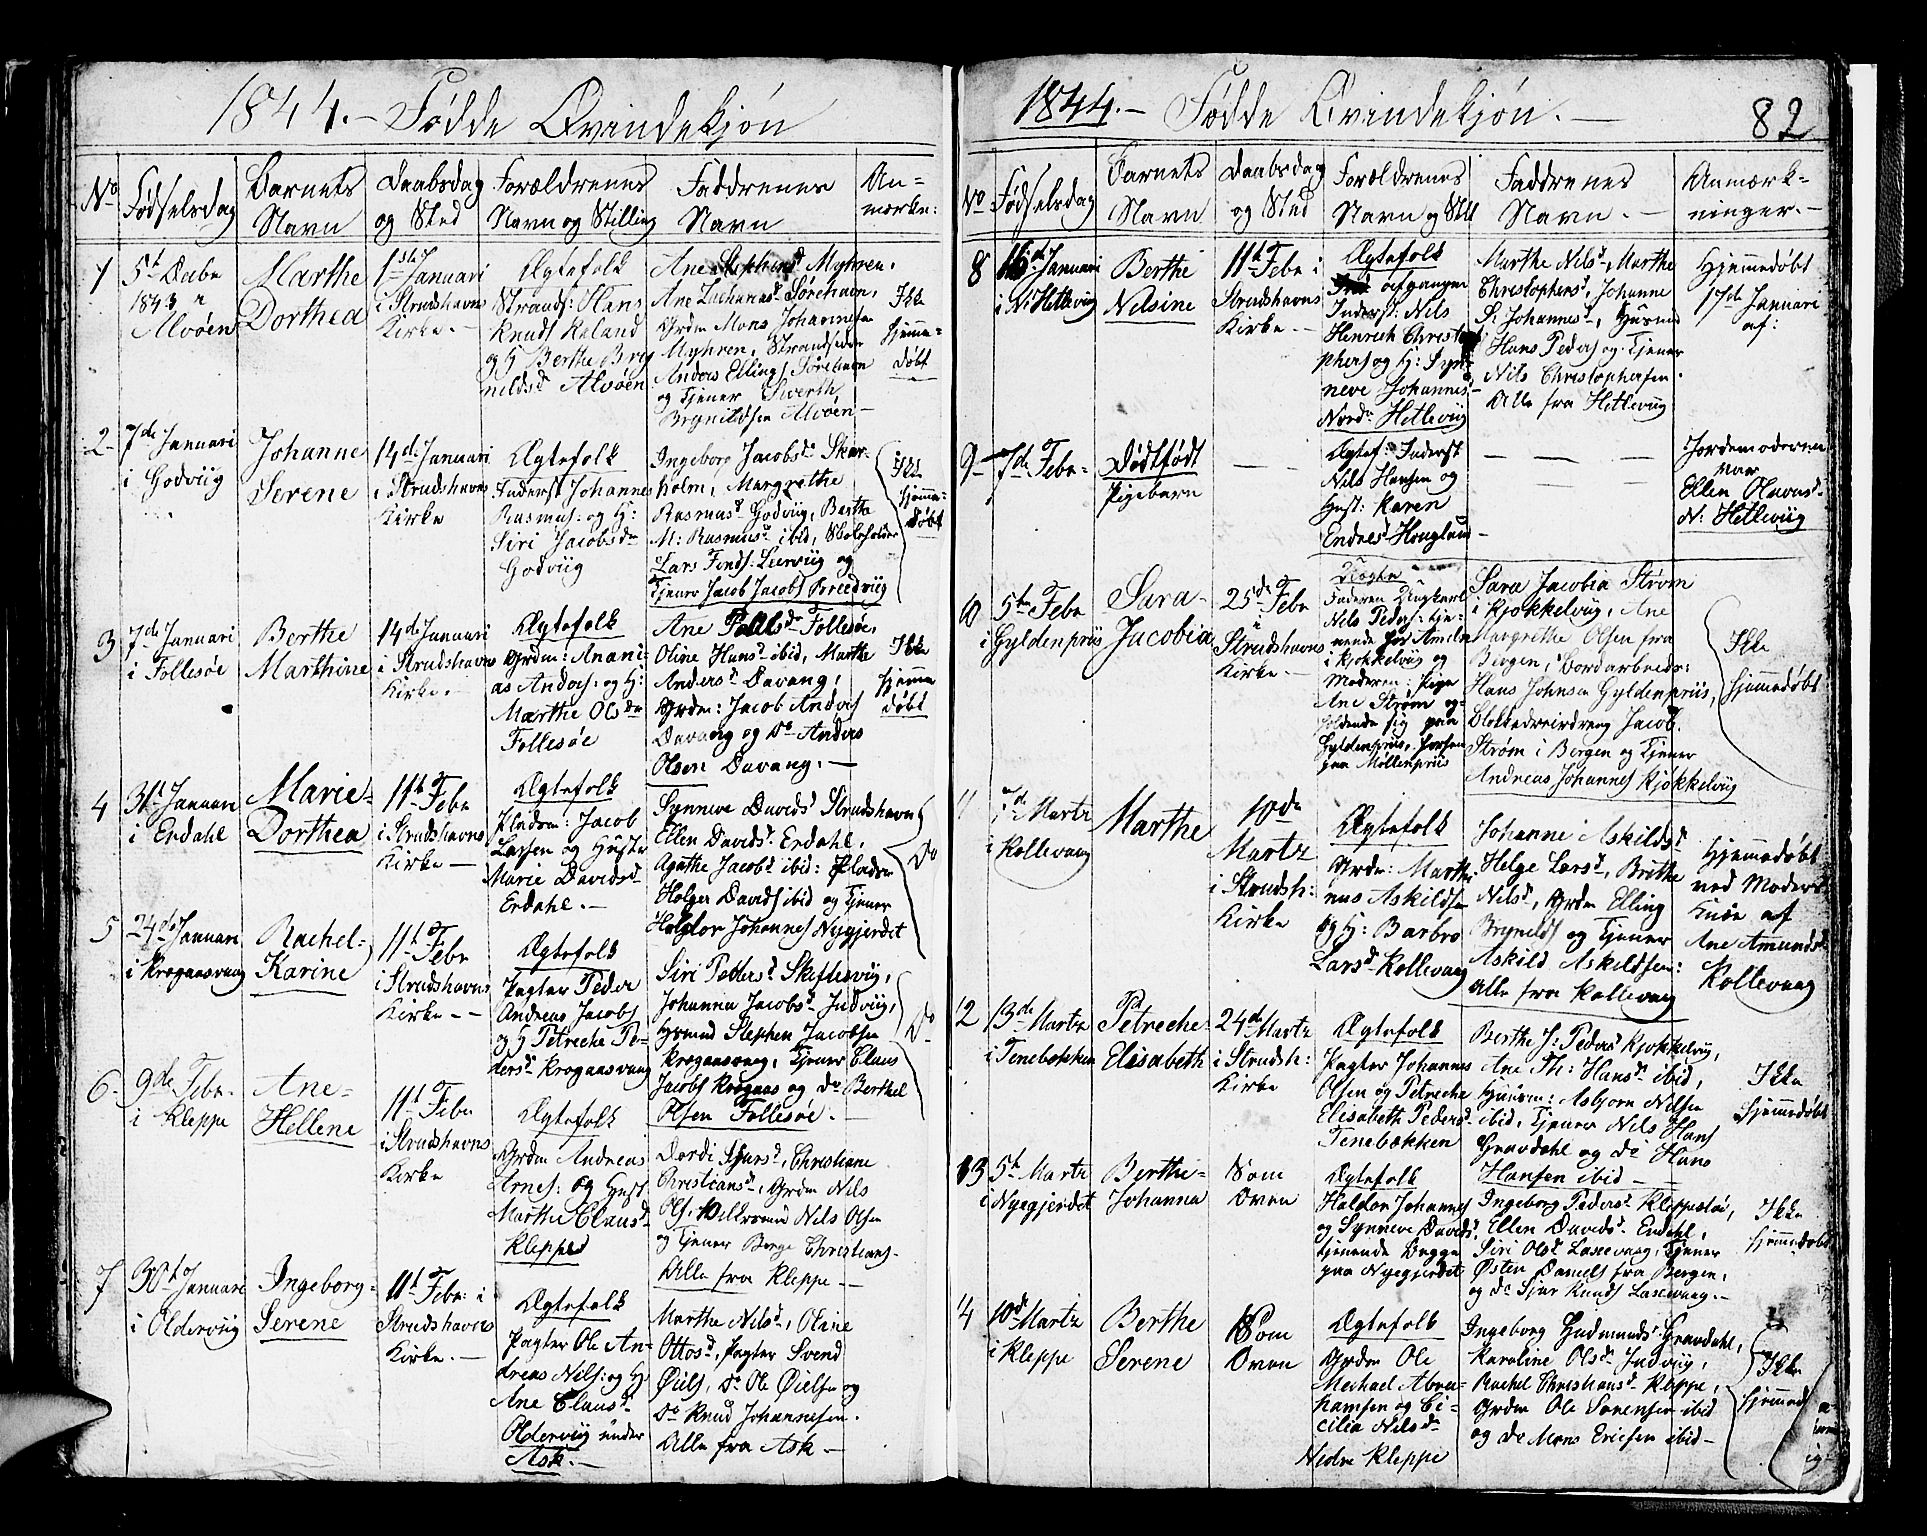 1844. – Fødde Qvindekjón
No
Fødselsdag
Barnets
Navn
Daabsdag
og Sted
Forældrenes
Navn og Stilling
Faddrenes
Navn
An=
mærkn:
1
5t Decbr
1843 i
Alvøen
Marthe
Dorthea
1ste Januari
i Strudshavns
Kirke. –
Ægtefolk
Strands: Hans
Knuds Reland
og H Berthe Bryn
nildsdr Alvøen
Ane Stephensd. Myhren,
Ane Zachariasd. Sørehaen,
Grdm Mons Johannesen
Myhren, Strandsider
Anders Ellings Sørehaen
og Tjener Siverth
Brynildsen Alvøen –
Ikke
hjemme=
døbt
2-
7de Januari
i Godviig
Johanne
Serene
14de Januari
i Strudshavns
Kirke
Ægtefolk
Inderst Johannes
Rasmus: og H:
Siri Jacobsdr
Godviig
Ingeborg Jacobsdr Skar=
holm, Margrethe
Rasmusd. Godviig, Berthe
M: Rasmusd. ibid, Skoleholder
Lars Finds: Leerviig og
Tjener Jacob Jacobs Breedviig
Ikke
hjemme=
døbt
3
7de Januari
i Follesøe
Berthe
Marthine
14de Januari
i Strudshavns
Kirke.
Ægtefolk
Grdm: Anani=
as Anders: og H:
Marthe Olsdr
Follesøe
Ane Pollsdr Follesøe,
Oline Hansd. ibid, Marthe
Andersd. Davang,
Grdm: Jacob Anders
Davang og Do Anders
Olsen Davang. –
Ikke
hjemme
døbt
4
31t Januari
i Erdahl
Marie=
Dorthea
11t Febr
i Strudshavns
Kirke –
Ægtefolk
Pladsm: Jacob
Larsen og Hustr
Marie Davidsd
Erdahl. –
Synneve Davidsd Strudshavn
Ellen Davidsd. Erdahl,
Agathe Jacobsd ibid: Pladsm
Holger Davids ibid og Tjener
Haldor Johannes Nygjerdet
Do
5
24de Januari
i Krogaasvaag
Rachel=
Karine
11t Febr
i Strudshavns
Kirke – –
Ægtefolk
Pagter Peder
Andreas Jacobs
og H Petreche Pe-
dersd. Krogaasvaag
Siri Pettersd. Skiftesviig,
Johanna Jacobsd. Judviig,
Huusmd Stephen Jacobsen
Krogaasvaag, Tjener Claus
Jacobs Krogaas og do Berthel
Olsen Follesøe. –
Do
6-
9de Febr.
i Kleppe
Ane=
Hellene
11t Febr
i Strudshavns
Kirke
Ægtefolk
Grdm Andreas
Arnes: og Hust
Marthe Clausd
Kleppe
Dordi Sjursd, Christiane
Christiansd., Grdm Nils
Ols, Nils Olsen
og Tjener Børge Christians.
Alle fra Kleppe –
7
30t Januari
i Olderviig
Ingeborg=
Serene
11t Febr: i
Strudshavns
Kirke. –
Ægtefolk
Pagter Ole An-
dreas Nils: og H
Ane Clausd.
Olderviig under
Ask. –
Marthe Nilsd., Oline
Ottosd., Pagter Svend
Øiels, Do Ole Øielsen og
Do Knud Johannesen.
Alle fra Ask –
1844. – Fødde Qvindekjón. –
82
No
Fødselsdag
Barnets
Navn
Daabsdag
og Sted
Forældrenes
Navn og Still
Faddrenes
Navn. –
Anmærk=
ninger. –
8
16de Januari
i N: Hetleviig
Berthe
Nelsine
11t Febr i
Strudshavns
Kirke. –
Ægtefolk
afgangen
Inderst: Nils
Henrich Christo
phers og H: Syn
neve Johannesd
Nordr Hetleviig
Marthe Nilsd., Marthe
Christophersd, Johanne
S: Johannesd., Huusm
Hans Peders og Tjener
Nils Christophersen.
Alle fra Hetleviig
Hjemmedøbt
17de Januari
af:
9
7de Febr.
Dødfødt
Pigebarn
–
Ægtef: Inderst
Nils Hansen og
Hust: Karen
Endresd Houglum
– – –
Jordemoderen
var
Ellen Olavusd.
N: Hetleviig
10
5te Febr
i Gyldenpriis
Sara-
Jacobia
25de Febr
i
Strudshavns
Kirke –
Uægte
Faderen Ungkarl
Nils Peders: tje-
nende hos Ameln
i Kjøkkelviig og
Moderen: Pige
Ane Strøm op-
holdende sig paa
Gyldenpriis, forhen
paa Møllenpriis
Sara Jacobia Strøm
i Kjøkkelviig, Ane
Margrethe Olsen fra
Bergen, Jordarbeider:
Hans Johnsen Gyldenpriis,
Blokkedreierdreng Jacob
Strøm i Bergen og Tjener
Andreas Johannes Kjøkkelviig
Ikke
hjemmedøbt
11
7de Martz
i Kollevaag
Marthe
10de
Martz
i Strudsh:
Kirke
Ægtefolk
Grdm: Marthi
nus Askildsen
og H: Barbro
Larsd. Kollevaag
Johanne Askildsd
Helge Larsd., Brithe
Nilsd., Grdm Elling
Brynilds og Tjener
Askild Askildsen:
Alle fra Kollevaag
Hjemmedøbt
ved Moders
Knæe af
Ane Amundsd
Kollevaag
12
13de Martz
i Tenebekken
Petreche
Elisabeth
24de Martz
i Strudsh:
Kirke
Ægtefolk
Pagter Johannes
Olsen og Petreche
Elisabeth Pedersd.
Tenebækken
Berthe J: Pedersd Kjøkkelviig,
Ane Th: Hansd. ibid,
Huusm: Asbjørn Nilsen
ibid, Tjener Nils Hans
Gravdahl og do Hans
Hansen ibid –
Ikke
hjemmedøbt
13
5t Martz
i Nygjerdet
Berthe=
Johanna
Som
Oven
Ægtefolk
Haldor Johannes
og Synneve Davidsd.
tjenende begge
paa Nyegjerdet
Ingeborg Pedersd. Kleppestøe,
Ellen Davidsd. Erdahl,
Siri Olsd. Laxevaag, Tjener
Østen Daniels fra Bergen,
og do Sjur Knuds Laxevaag. –
Ikke
hjemmedøbt
14
10de Martz
i Kleppe
Berthe
Serene
Som
Oven
Ægtefolk
Grdm Ole
Michael Abra-
hamsen og Ci-
cilia Nilsdr
Nedre Kleppe
Ingeborg Gudmundsd. Gravdahl,
Karoline Olsdr Judviig,
Rachel Christiansd. Kleppe,
Grdm Ole Sørensen ibid
og do Mons Ericsen ibid –
Ikke
hjemmed